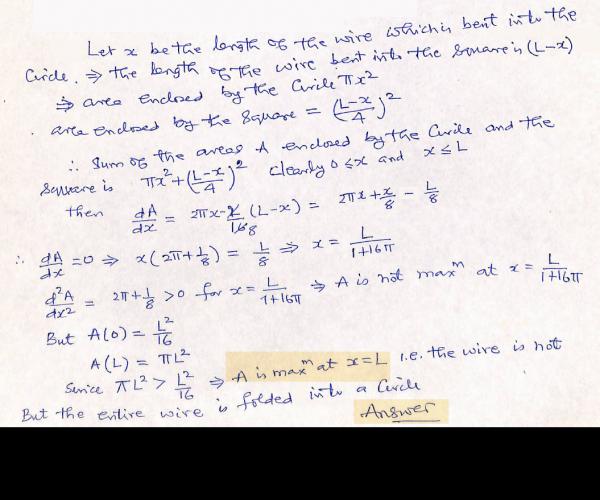 Let x be the length of the wire which is bent into the
Circle. ⇒ the length of the wire bent into the square is (L-x)
⇒ area enclosed by the Circle πx²
area enclosed by the square = (L-x/4)²
∴ Sum of the areas A enclosed by the Circle and the
square is πx² + (L-x/4)² clearly 0 ≤ x and x ≤ L
then dA/dx = 2πx - 2/16 8 (L-x) = 2πx + x/8 - L/8
∴ dA/dx = 0 ⇒ x(2π + 1/8) = L/8 ⇒ x = L/1+16π
d²A/dx² = 2π + 1/8 > 0 for x = L/1+16π ⇒ A is not maxᵐ at x = L/1+16π
But A(0) = L²/16
A(L) = πL²
Since πL² > L²/16 ⇒ A is maxᵐ at x=L i.e. the wire is not
But the entire wire is folded into a Circle
Answer